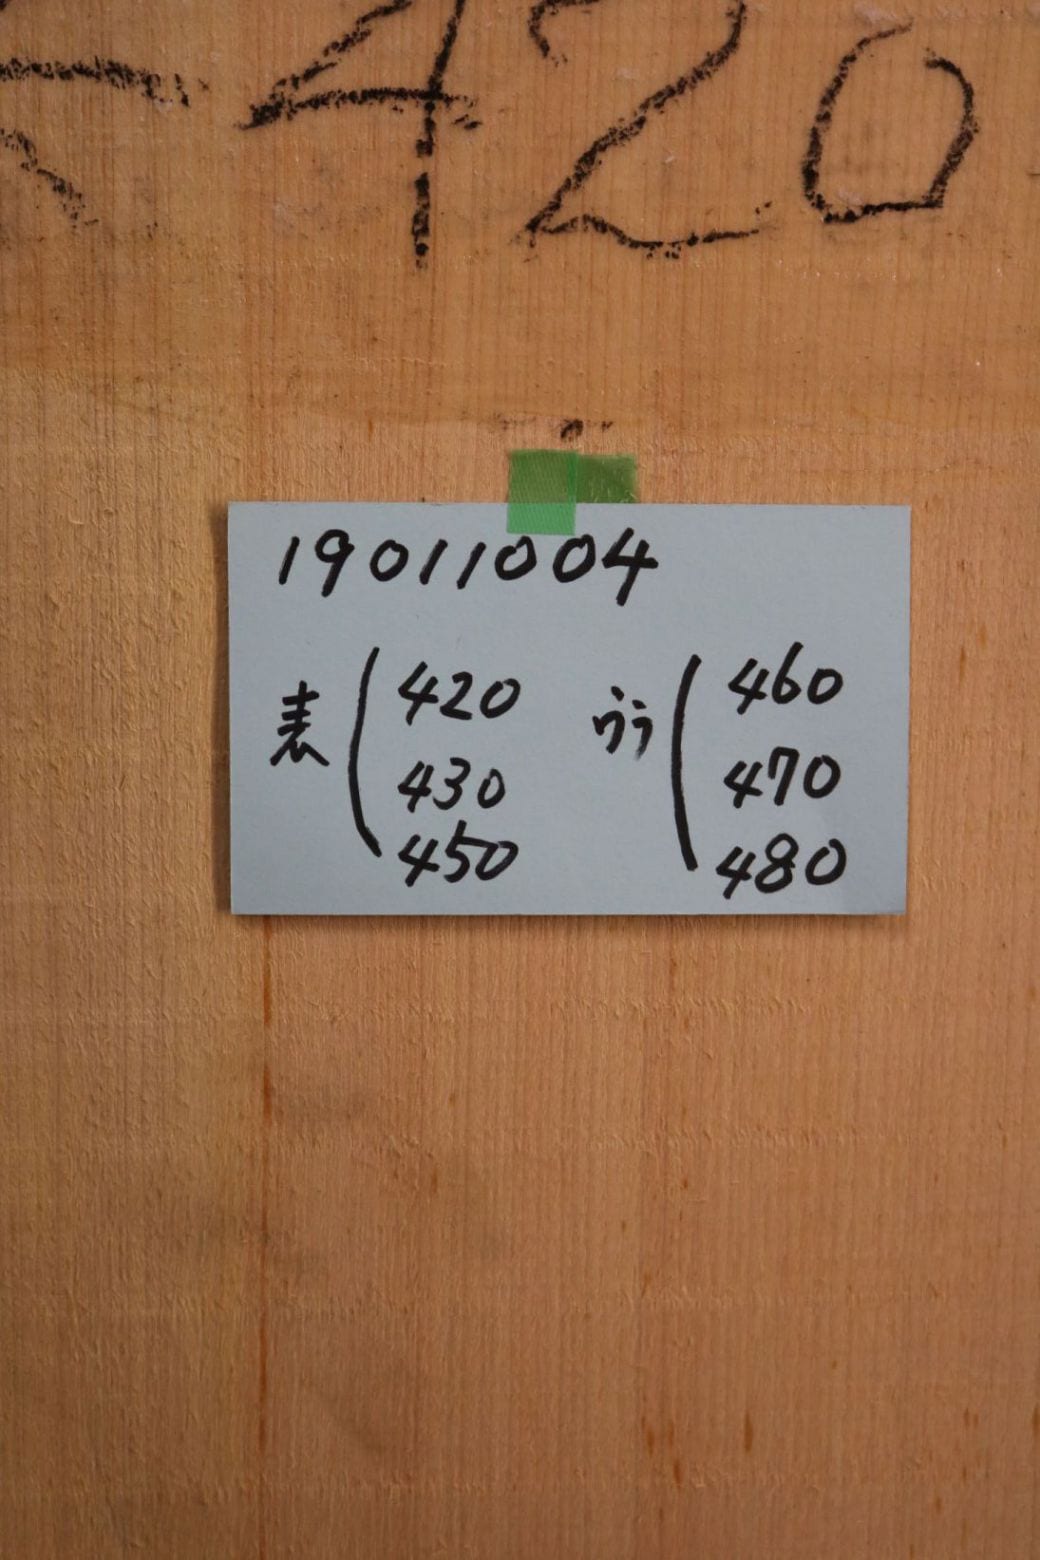 420
19011004
表 ( 420 ウラ ( 460
430 470
450 480